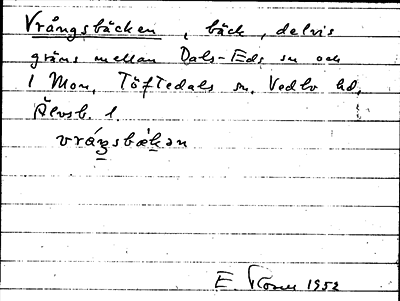 Vrångsbäcken, bäck, delvis
gräns mellan Dals-Eds sn och
1 Mon, Töftedals sn, Vedbo hd,
Älvsb. l.
vráŋsbækən
E 1952